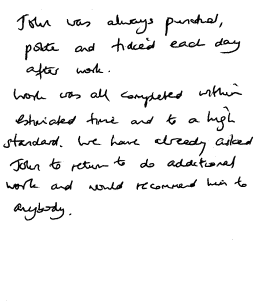 John was always punctual,
polite and tidied each day
after work.
Work was all completed within
estimated time and to a high
standard. We have already asked
John to return to do additional
work and would recommend him to
anybody.